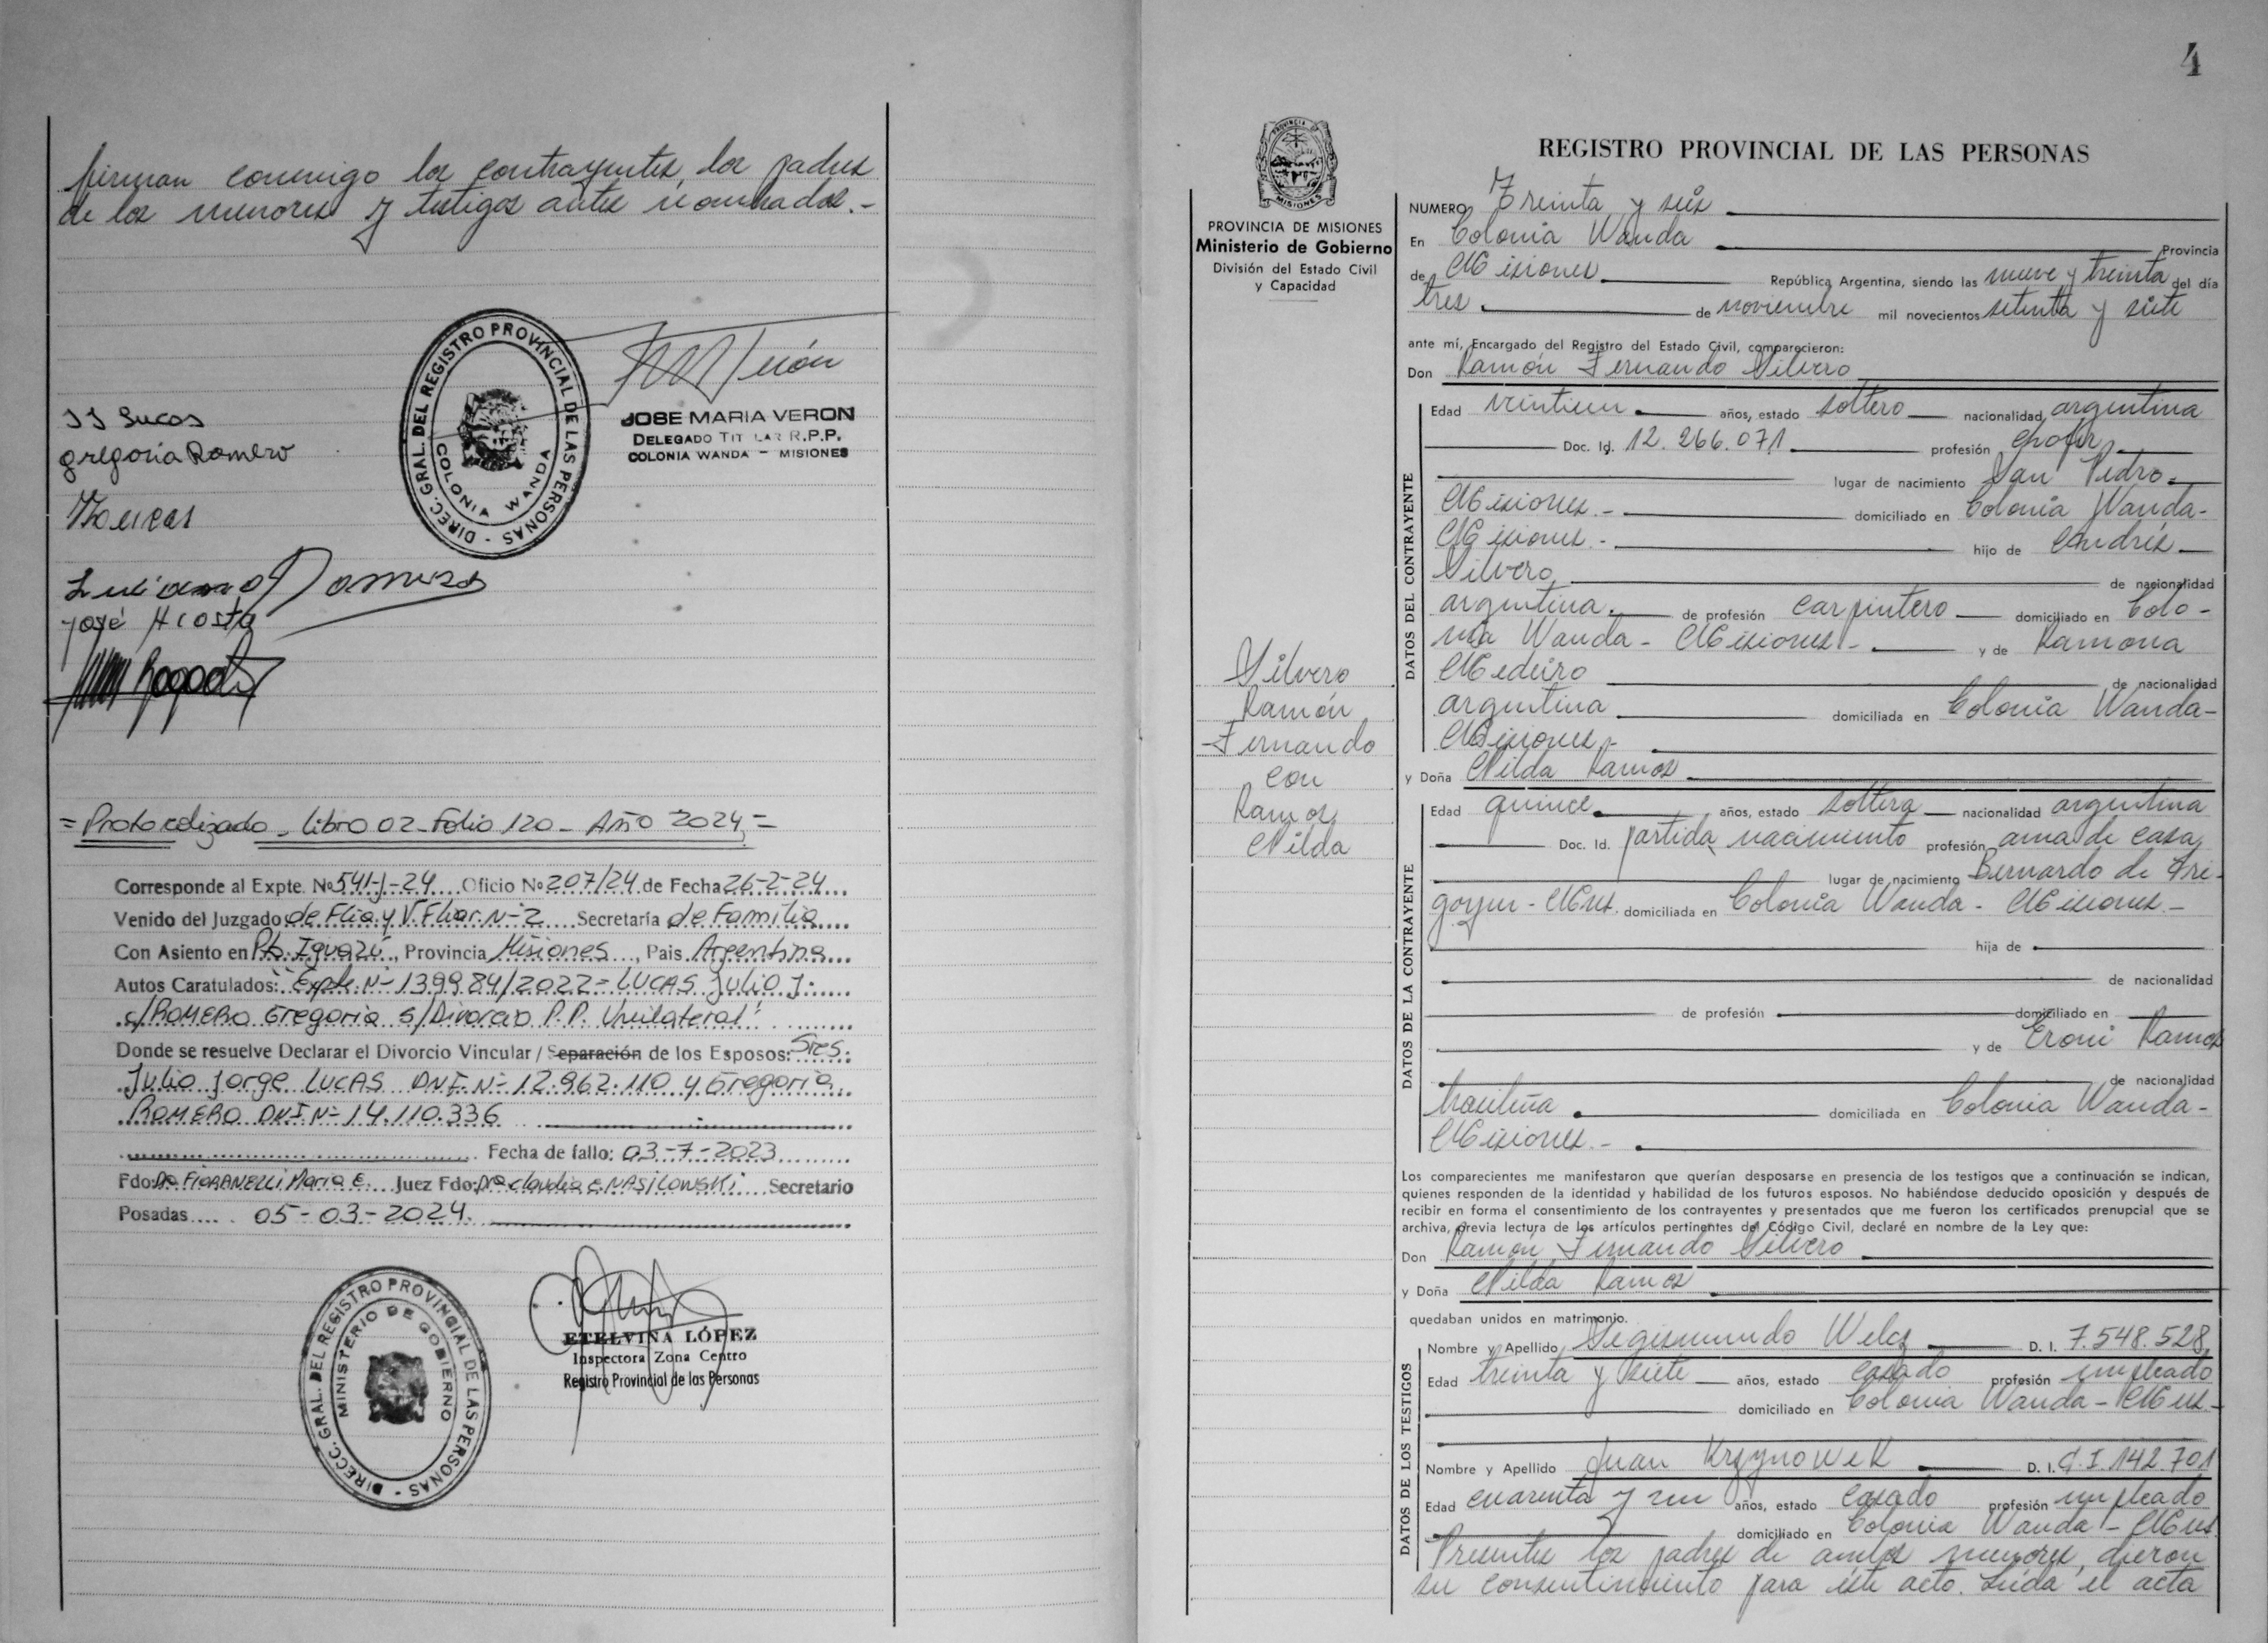 firman conmigo los contrayentes, los padres
de los menores y testigos antes nombrados.-
DIREC. GRAL. DEL REGISTRO PROVINCIAL DE LAS PERSONAS -
COLONIA WANDA
JOSE MARIA VERON
DELEGADO TIT LAR R.P.P.
COLONIA WANDA - MISIONES
JJ Lucas
gregoria Romero
Lucas
José Acosta
= Protocolizado - Libro 02 - Folio 120 - Año 2024 =
Corresponde al Expte. Nº 541-J-24 Oficio Nº 207/24 de Fecha 26-2-24
Venido del Juzgado de Flia. y V. Fliar. Nº 2 Secretaría de Familia
Con Asiento en Pto. Iguazú, Provincia Misiones, Pais Argentina
Autos Caratulados: "Expte. Nº 139984/2022 - LUCAS Julio J.
c/ROMERO Gregoria s/Divorcio P.P. Unilateral"
Donde se resuelve Declarar el Divorcio Vincular / Separación de los Esposos: Sres.
Julio Jorge LUCAS DNI. Nº 12.962.110 y Gregoria
ROMERO DNI Nº 14.110.336
Fecha de fallo: 03-7-2023
Fdo: Dra FIORANELLI María E. Juez Fdo: Dra Claudia E. NASILOWSKI Secretario
Posadas 05-03-2024.
DIRECC. GRAL. DEL REGISTRO PROVINCIAL DE LAS PERSONAS -
MINISTERIO DE GOBIERNO
ETELVINA LÓPEZ
Inspectora Zona Centro
Registro Provincial de las Personas
4
PROVINCIA DE MISIONES
PROVINCIA DE MISIONES
Ministerio de Gobierno
División del Estado Civil
y Capacidad
Silvero
Ramón
Fernando
con
Ramos
Nilda
REGISTRO PROVINCIAL DE LAS PERSONAS
NUMERO Treinta y seis
En Colonia Wanda Provincia
de Misiones República Argentina, siendo las nueve y treinta del día
tres de noviembre mil novecientos setenta y siete
ante mí, Encargado del Registro del Estado Civil, comparecieron:
Don Ramón Fernando Silvero
DATOS DEL CONTRAYENTE
Edad veintiun años, estado soltero nacionalidad argentina
Doc. Id. 12.266.071 profesión chofer
lugar de nacimiento San Pedro-
Misiones.- domiciliado en Colonia Wanda-
Misiones.- hijo de Andrés
Silvero de nacionalidad
argentina. de profesión carpintero domiciliado en Colo-
nia Wanda - Misiones.- y de Ramona
Medeiro de nacionalidad
argentina domiciliada en Colonia Wanda-
Misiones.-
y Doña Nilda Ramos
DATOS DE LA CONTRAYENTE
Edad quince años, estado soltera nacionalidad argentina
Doc. Id. partida nacimiento profesión ama de casa
lugar de nacimiento Bernardo de Iri-
goyen - Mnes. domiciliada en Colonia Wanda - Misiones.-
hija de
de nacionalidad
de profesión domiciliado en
y de Eroni Ramos
de nacionalidad
brasileña domiciliada en Colonia Wanda-
Misiones.-
Los comparecientes me manifestaron que querían desposarse en presencia de los testigos que a continuación se indican,
quienes responden de la identidad y habilidad de los futuros esposos. No habiéndose deducido oposición y después de
recibir en forma el consentimiento de los contrayentes y presentados que me fueron los certificados prenupcial que se
archiva, previa lectura de los artículos pertinentes del Código Civil, declaré en nombre de la Ley que:
Don Ramón Fernando Silvero
y Doña Nilda Ramos
quedaban unidos en matrimonio.
DATOS DE LOS TESTIGOS
Nombre y Apellido Segismundo Welcz D. I. 7.548.528
Edad treinta y siete años, estado casado profesión empleado
domiciliado en Colonia Wanda - Mnes.-
Nombre y Apellido Juan Krzynowek D. I. C.I. 142.701
Edad cuarenta y un años, estado casado profesión empleado
domiciliado en Colonia Wanda - Mnes.
Presentes los padres de ambos menores, dieron
su consentimiento para éste acto. Leída el acta